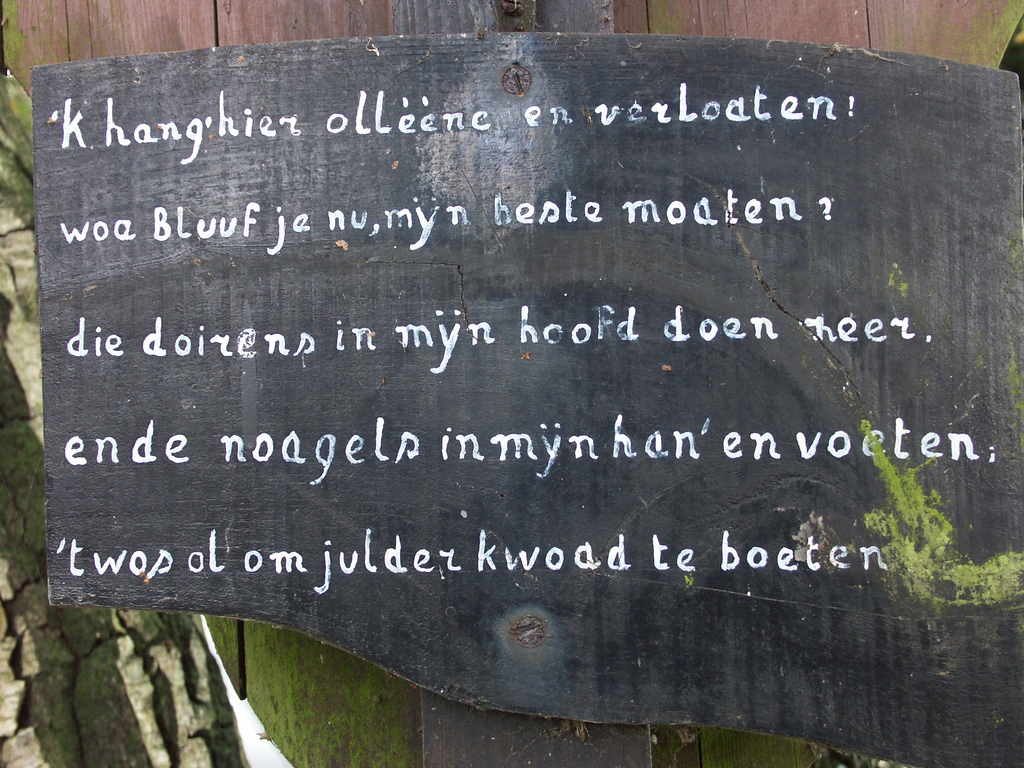 'K hang'hier ollèène en verloaten!
woa Bluuf je nu, mijn beste moaten?
die doirens in mijn hoofd doen zeer,
ende noagels in mijn han' en voeten;
't wos ol om julder kwoad te boeten